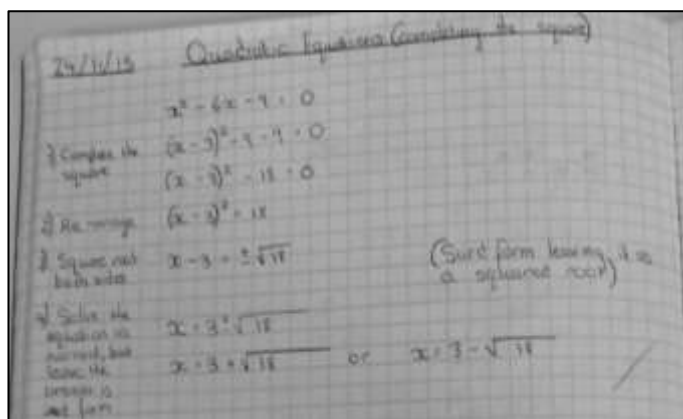 24/11/15 Quadratic Equations (Completing the square)
x² - 6x - 9 = 0
1) Complete the square (x - 3)² - 9 - 9 = 0
(x - 3)² - 18 = 0
2) Re-arrange (x - 3)² = 18
3) Square root both sides x - 3 = ±√18 (Surd form leaving it as a square root)
4) Solve the equation as normal, but leave the answer in surd form
x = 3 ± √18
x = 3 + √18 or x = 3 - √18